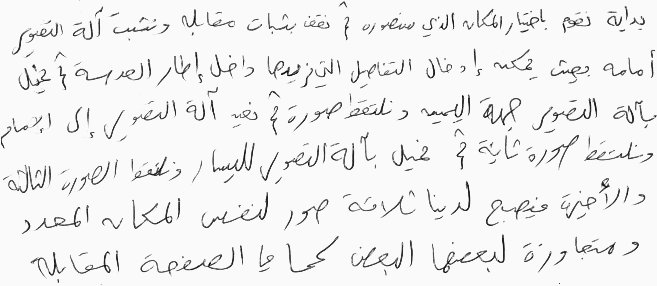 بداية نقوم باختيار المكان الذي سنصوره ثم نقف بثبات مقابله ونثبت آلة التصوير
أمامه بحيث يمكنه إدخال التفاصيل التي نريدها داخل إطار العدسة ثم نميل
بآلة التصوير جهة اليمين ونلتقط صورة ثم نعيد آلة التصوير إلى الإمام
ونلتقط صورة ثانية ثم نميل بآلة التصوير لليسار ونلتقط الصورة الثالثة
والأخيرة فيصبح لدينا ثلاثة صور لنفس المكان المحدد
ومتجاورة لبعضها البعض كما في الصفحة المقابلة